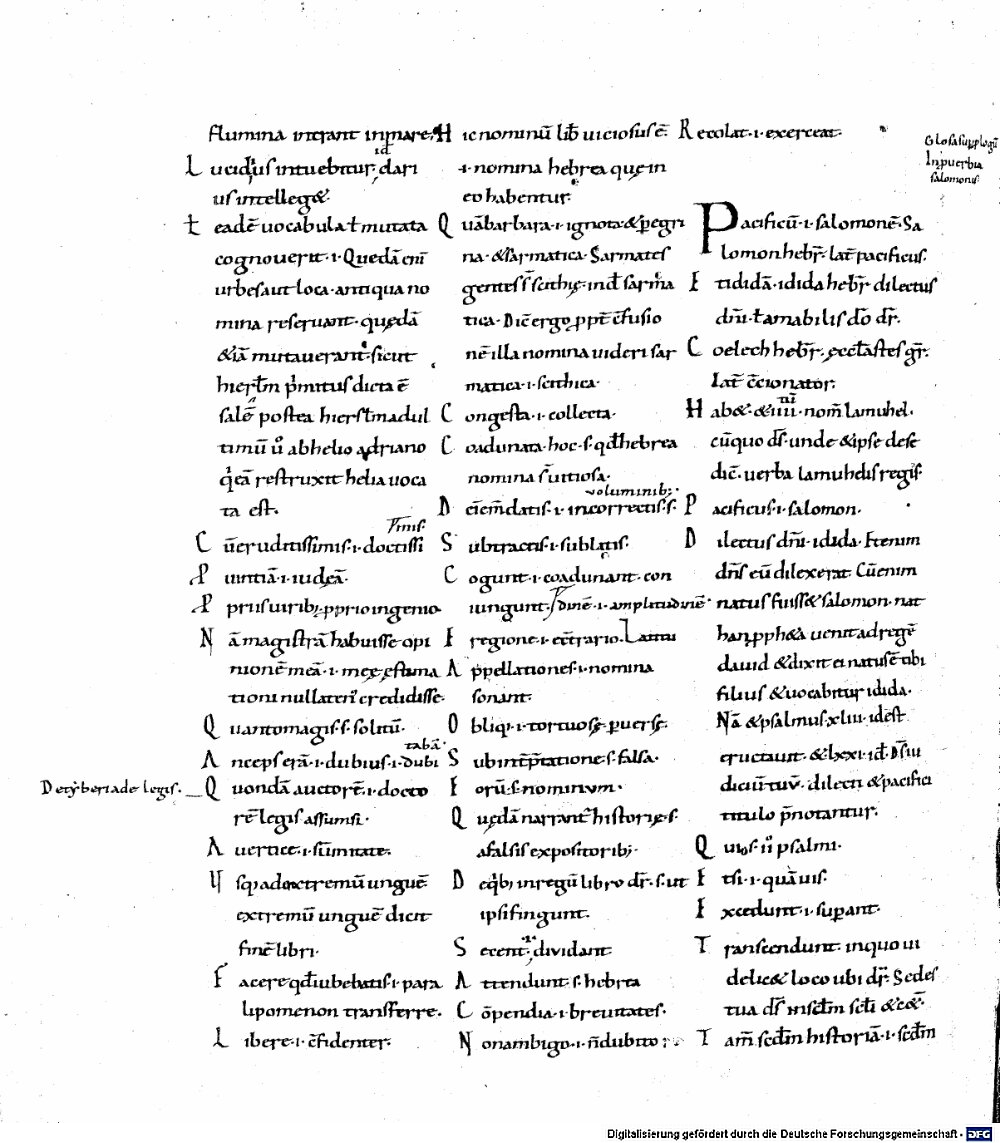 flumina intrant inmare.
L ucidiꝰ intuebitur. id clari
us intelleg&.
ł eadē uocabula ł mutata
cognouerit ·i· Quedā eni
urbes aut loca antiqua no
mina reseruant. quędā
&iā mutauerant. sicut
hierłm p̄mitus dicta ē
salē postea hierłm adul
timū u͛o abhelio adriano
q̇ eā restruxit helia uoca
ta est.
C ū eruditissimis ·i· doctissi
mis.
P uintiā ·i· iudęā.
P priis uirib; pprio ingenio
N ā magistrā habuisse opi
nionē meā ·i· meę estima
tioni nullateń credidisse.
Q uantomagis ·s· solitū.
A nceps erā ·i· dubius ·i· dubi
tabā.
De tyberiade legis.
Q uondā auctorē ·i· docto
rē legis assumsi.
A uertice ·i· sūmitate.
U sq; ad extremū unguē
extremū unguē dicit
finē libri.
F acere qđ iubebatis ·i· para
lipomenon transferre.
L ibere ·i· c̄fidenter.
H ic nominū lib̄ uiciosus ē.
·i· nomina hebrea quę in
eo habentur.
Q uā barbara ·i· ignota & pegri
na · & sarmatica. Sarmates
gentes s̄ scithię. inđ sarma
tica. Dic̄ ergo ppt̄ c̄fusio
nē illa nomina uideri sar
matica ·i· scithica.
C ongesta ·i· collecta.
C oadunata. hoc ·s· qđ hebrea
nomina s̄ uitiosa.
voluminib;.
D e īem̄datis ·i· incorrectis ·s·
S ubtractis ·i· sublatis.
C ogunt ·i· coadunant. con
iungunt. ·i· amplitudinē.
E regione ·i· ec̄trario. Latitu
A ppellationes ·i· nomina
sonant.
O bliqi ·i· tortuosę. puersę.
S ub int̄p̄tatione ·s· falsa.
E orū ·s· nominum.
Q uędā narrant historię ·s·
a falsis expositorib;.
D e q̇b; in regū libro dr̄ ·s· ut
ipsi fingunt.
S ecent ·i· dividant.
A ttendunt ·s· hebrea
C ōpendia ·i· breuitates.
N on ambigo ·i· n̄ dubito
R ecolat ·i· exerceat.
Glosa sup plogū
In puerbia
salomonis.
P acificū ·i· salomonē. Sa
lomon hebr̄. lat̄ pacificus.
E t ididā. idida hebr̄ dilectus
dn̄i ł amabilis dō dr̄.
C oelech hebr̄. ęccłastes gr̄.
lat̄ c̄cionator.
H ab& & iiii. nom̄ lamuhel.
cū quo ds̄. unde & ipse dese
dic̄. uerba lamuhelis regis.
P acificus ·i· salomon.
D ilectus dn̄i. idida. Etenim
dn̄s eū dilexerat. Cū enim
natus fuiss& salomon. nat
han ppha uenit ad regē
dauid & dixit ei natus ē tibi
filius & uocabitur idida.
Nā & psalmus xliiii. id est
eructauit. & lxxi. iđ Ds̄ iu
diciū tuū. dilecti & pacifici
titulo p̄notantur.
Q uis. ii psalmi.
E tsi ·i· quāuis.
E xcedunt ·i· supant.
T ranscendunt. in quo ui
delic& loco ubi dr̄. Sedes
tua ds̄ in scłm scłi &c&.
T am̄ scđm historiā ·i· scđm